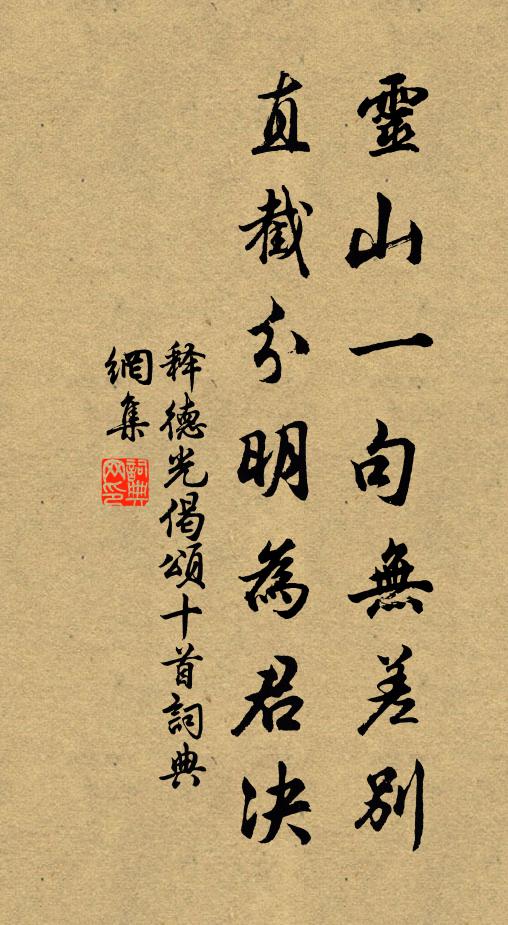 靈山一句無差別
直截分明為君決
释德光偈頌十首詞典
網集
詞典
网印